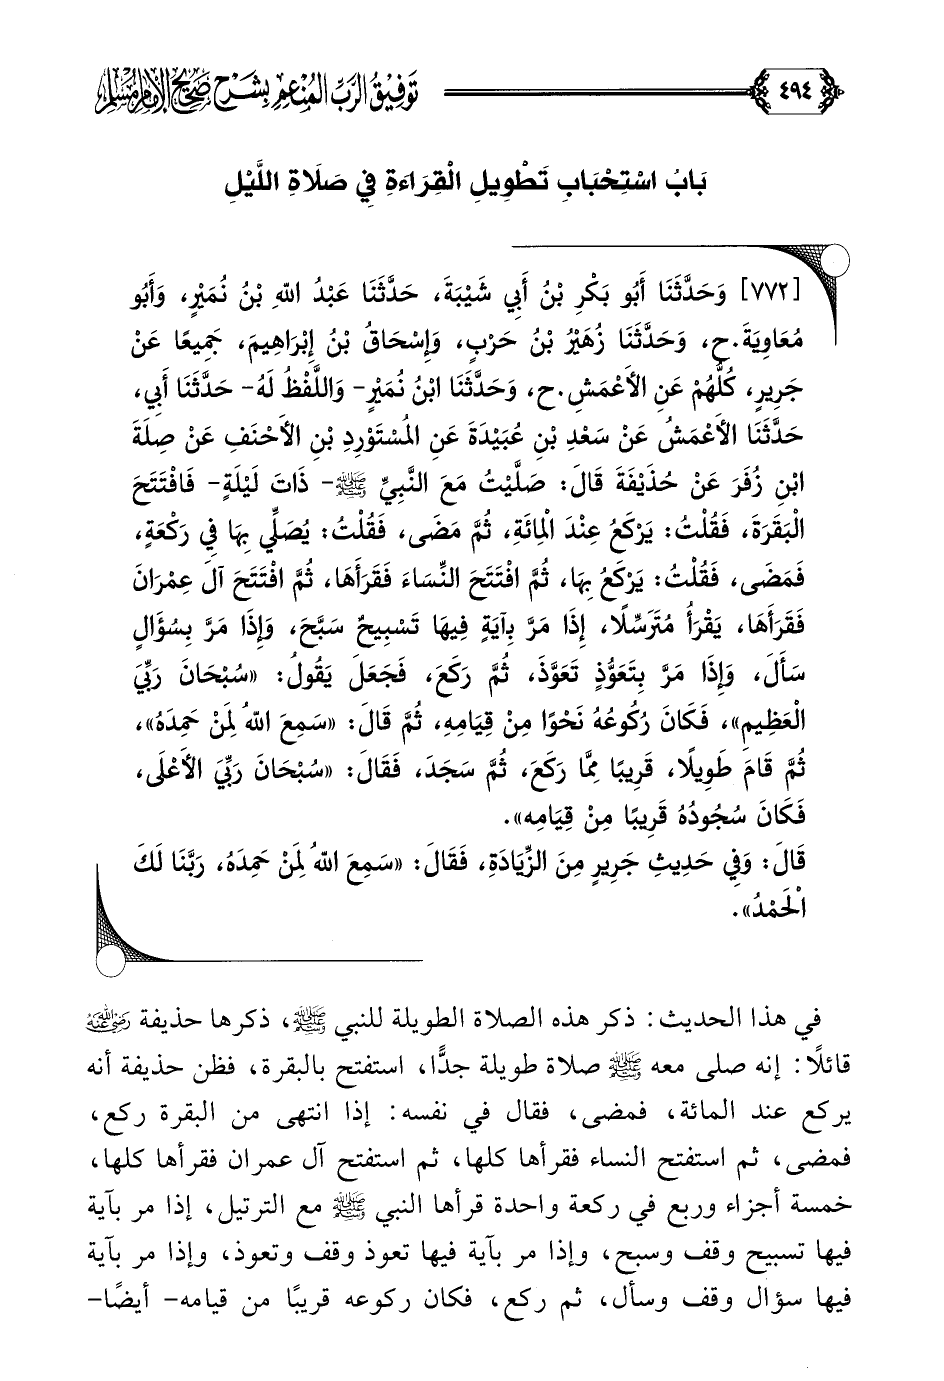 ٤٩٤
تَوفِيقُ الرَبِّ المُنْعِم بِشَرْح صَحِيح الإِمَام مُسْلِم
بَابُ اسْتِحْبَابِ تَطْوِيلِ الْقِرَاءَةِ فِي صَلَاةِ اللَّيْلِ
[٧٧٢] وَحَدَّثَنَا أَبُو بَكْرِ بْنُ أَبِي شَيْبَةَ، حَدَّثَنَا عَبْدُ اللهِ بْنُ نُمَيْرٍ، وَأَبُو
مُعَاوِيَةَ.ح، وَحَدَّثَنَا زُهَيْرُ بْنُ حَرْبٍ، وَإِسْحَاقُ بْنُ إِبْرَاهِيمَ، جَمِيعًا عَنْ
جَرِيرٍ، كُلُّهُمْ عَنِ الأَعْمَشِ.ح، وَحَدَّثَنَا ابْنُ نُمَيْرٍ- وَاللَّفْظُ لَهُ- حَدَّثَنَا أَبِي،
حَدَّثَنَا الأَعْمَشُ عَنْ سَعْدِ بْنِ عُبَيْدَةَ عَنِ المُسْتَوْرِدِ بْنِ الأَحْنَفِ عَنْ صِلَةَ
ابْنِ زُفَرَ عَنْ حُذَيْفَةَ قَالَ: صَلَّيْتُ مَعَ النَّبِيِّ ﷺ- ذَاتَ لَيْلَةٍ- فَافْتَتَحَ
الْبَقَرَةَ، فَقُلْتُ: يَرْكَعُ عِنْدَ الْمِائَةِ، ثُمَّ مَضَى، فَقُلْتُ: يُصَلِّي بِهَا فِي رَكْعَةٍ،
فَمَضَى، فَقُلْتُ: يَرْكَعُ بِهَا، ثُمَّ افْتَتَحَ النِّسَاءَ فَقَرَأَهَا، ثُمَّ افْتَتَحَ آلَ عِمْرَانَ
فَقَرَأَهَا، يَقْرَأُ مُتَرَسِّلًا، إِذَا مَرَّ بِآيَةٍ فِيهَا تَسْبِيحٌ سَبَّحَ، وَإِذَا مَرَّ بِسُؤَالٍ
سَأَلَ، وَإِذَا مَرَّ بِتَعَوُّذٍ تَعَوَّذَ، ثُمَّ رَكَعَ، فَجَعَلَ يَقُولُ: «سُبْحَانَ رَبِّيَ
الْعَظِيمِ»، فَكَانَ رُكُوعُهُ نَحْوًا مِنْ قِيَامِهِ، ثُمَّ قَالَ: «سَمِعَ اللهُ لِمَنْ حَمِدَهُ»،
ثُمَّ قَامَ طَوِيلًا، قَرِيبًا مِمَّا رَكَعَ، ثُمَّ سَجَدَ، فَقَالَ: «سُبْحَانَ رَبِّيَ الأَعْلَى،
فَكَانَ سُجُودُهُ قَرِيبًا مِنْ قِيَامِه».
قَالَ: وَفِي حَدِيثِ جَرِيرٍ مِنَ الزِّيَادَةِ، فَقَالَ: «سَمِعَ اللهُ لِمَنْ حَمِدَهُ، رَبَّنَا لَكَ
الْحَمْدُ».
في هذا الحديث: ذكر هذه الصلاة الطويلة للنبي ﷺ، ذكرها حذيفة رضي الله عنه
قائلًا: إنه صلى معه ﷺ صلاة طويلة جدًّا، استفتح بالبقرة، فظن حذيفة أنه
يركع عند المائة، فمضى، فقال في نفسه: إذا انتهى من البقرة ركع،
فمضى، ثم استفتح النساء فقرأها كلها، ثم استفتح آل عمران فقرأها كلها،
خمسة أجزاء وربع في ركعة واحدة قرأها النبي ﷺ مع الترتيل، إذا مر بآية
فيها تسبيح وقف وسبح، وإذا مر بآية فيها تعوذ وقف وتعوذ، وإذا مر بآية
فيها سؤال وقف وسأل، ثم ركع، فكان ركوعه قريبًا من قيامه- أيضًا-